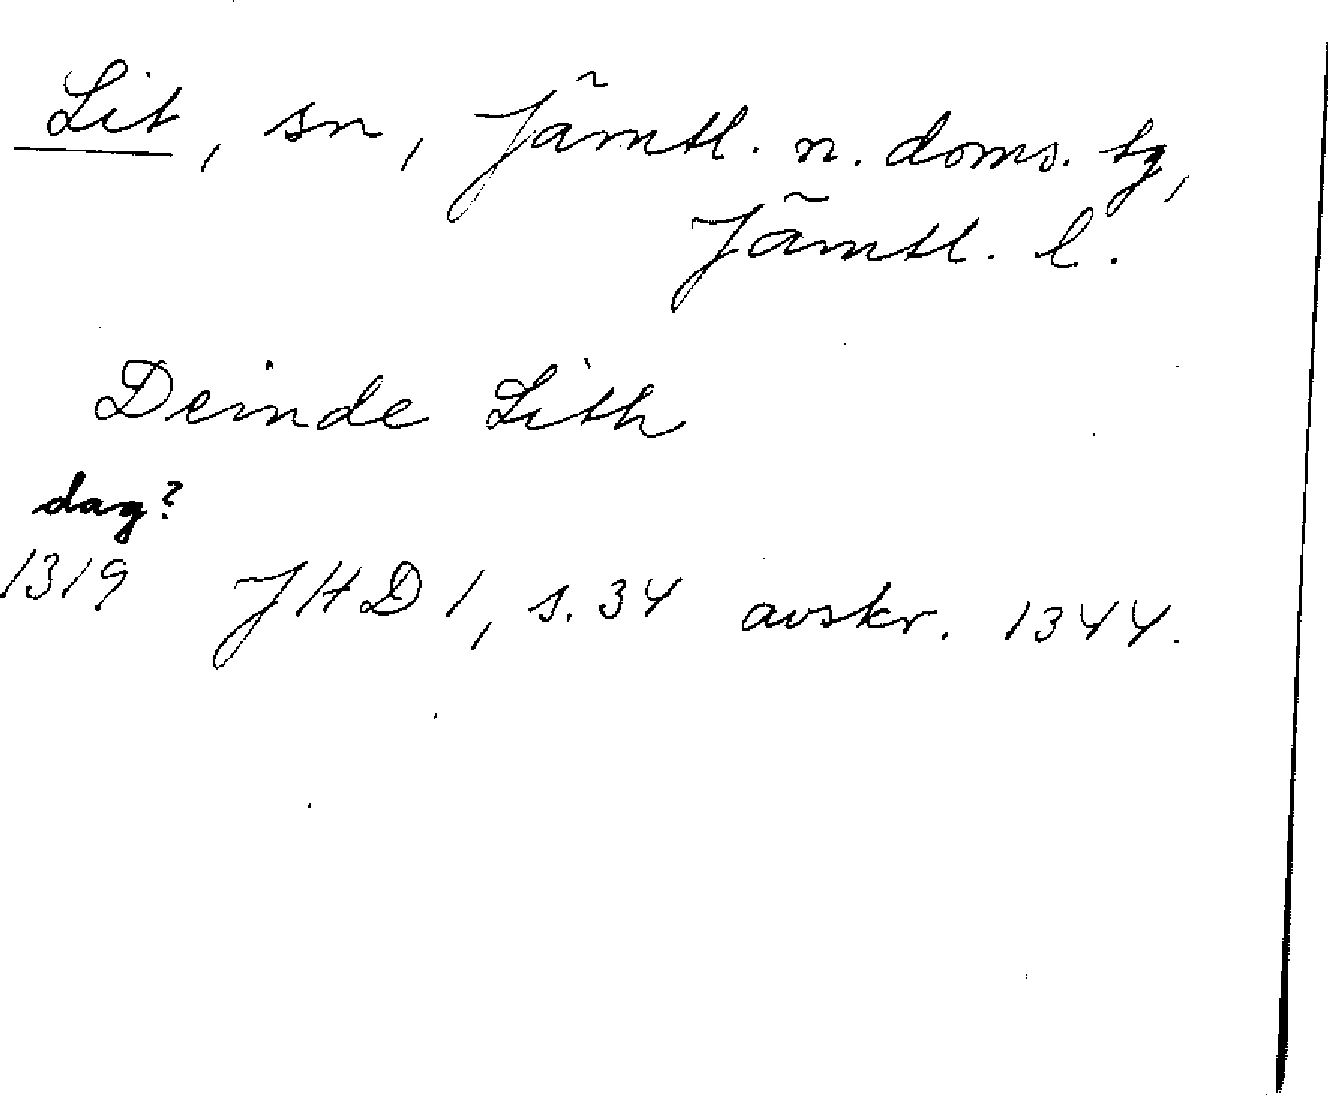 Lit, sn, Jämtl. n. doms. tg,
Jämtl. l.
Deinde Lith
dag?
1319 JHD 1, s. 34 avskr. 1344.